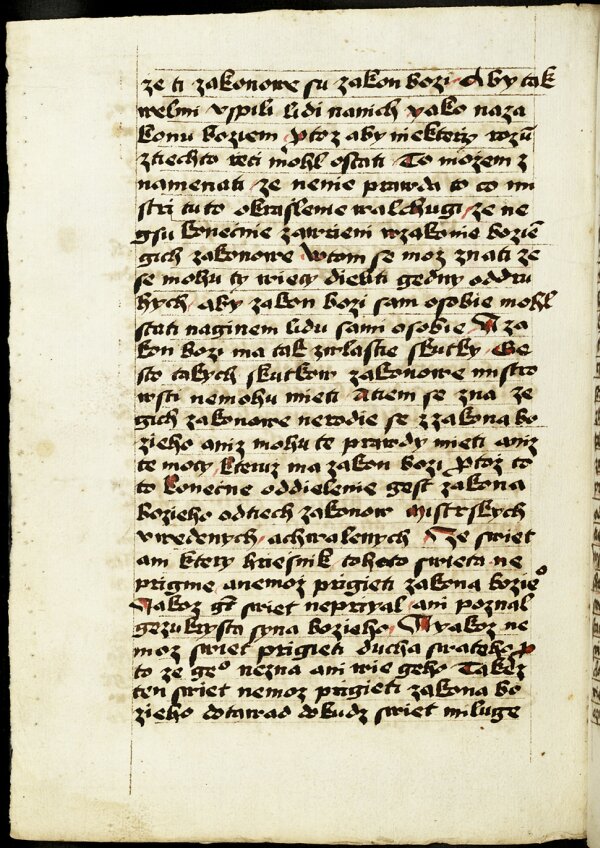 ze ti zakonowe su zakon bozi Aby tak
welmi vpili lidi nanich yako naza
konu boziem Protoz aby niektery rozū
ztiechto reci mohl ostati To mozem z
namenati ze nenie prawda to co mi
stri tuto okrasleme walchugi ze ne
gsu konecnie zawrieni wzakonie bozie
gich zakonowe wtom se moz znati ze
se mohu ty wiecy dieliti gedny oddru
hych aby zakon bozi sam osobie mohl
stati naginem lidu sami osobie A za
kon bozi ma tak zwlastie skutky Ge
sto takych skutkow zakonowe mistro
wsti nemohu mieti Atiem se zna ze
gich zakonowe nerodie se zzakona bo
zieho aniz mohu te prawdy mieti aniz
te mocy kteruz ma zakon bozi Ptoz to
to konecne oddielenie gest zakona
bozieho odtiech zakonow mistrskych
vwedenych achwalenych Ze swiet
ani ktery hriesnik tohoto swieta ne
prigme anemoz prigieti zakona bozieo
Jakoz gt swiet neprigal ani poznal
gezukrysta syna bozieho A yakoz ne
moz swiet prigieti ducha swateho p
to ze geo nezna ani wie geho Takez
ten swiet nemoz prigieti zakona bo
zieho dotawad dokudz swiet miluge